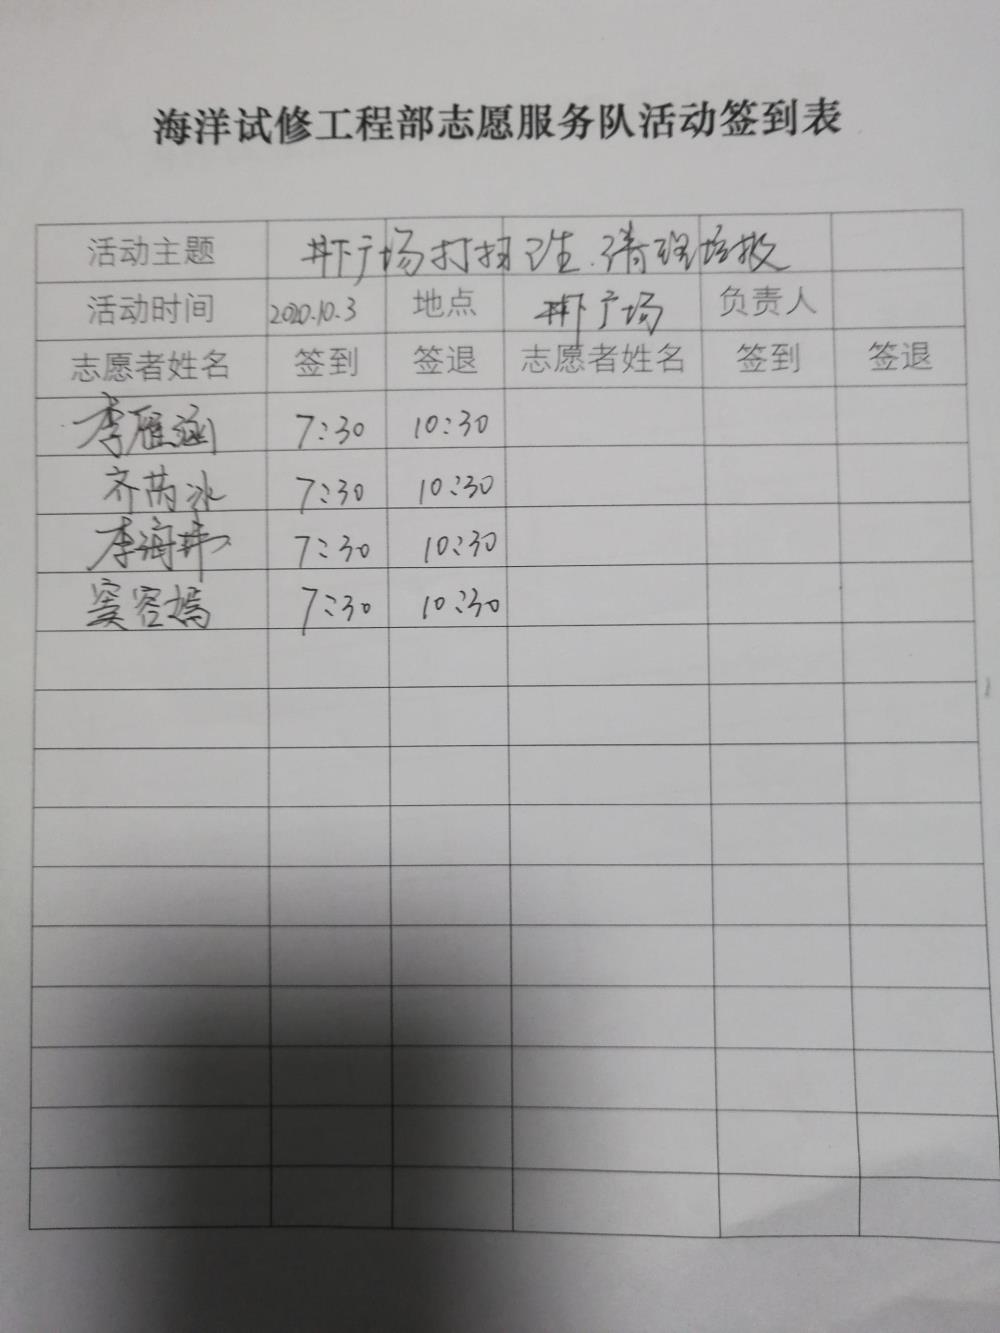 海洋试修工程部志愿服务队活动签到表
活动主题 井下广场打扫卫生.清理垃圾
活动时间 2020.10.3 地点 井下广场 负责人
志愿者姓名 签到 签退 志愿者姓名 签到 签退
李雁涵 7:30 10:30
齐芮冰 7:30 10:30
李海 7:30 10:30
窦容嫣 7:30 10:30